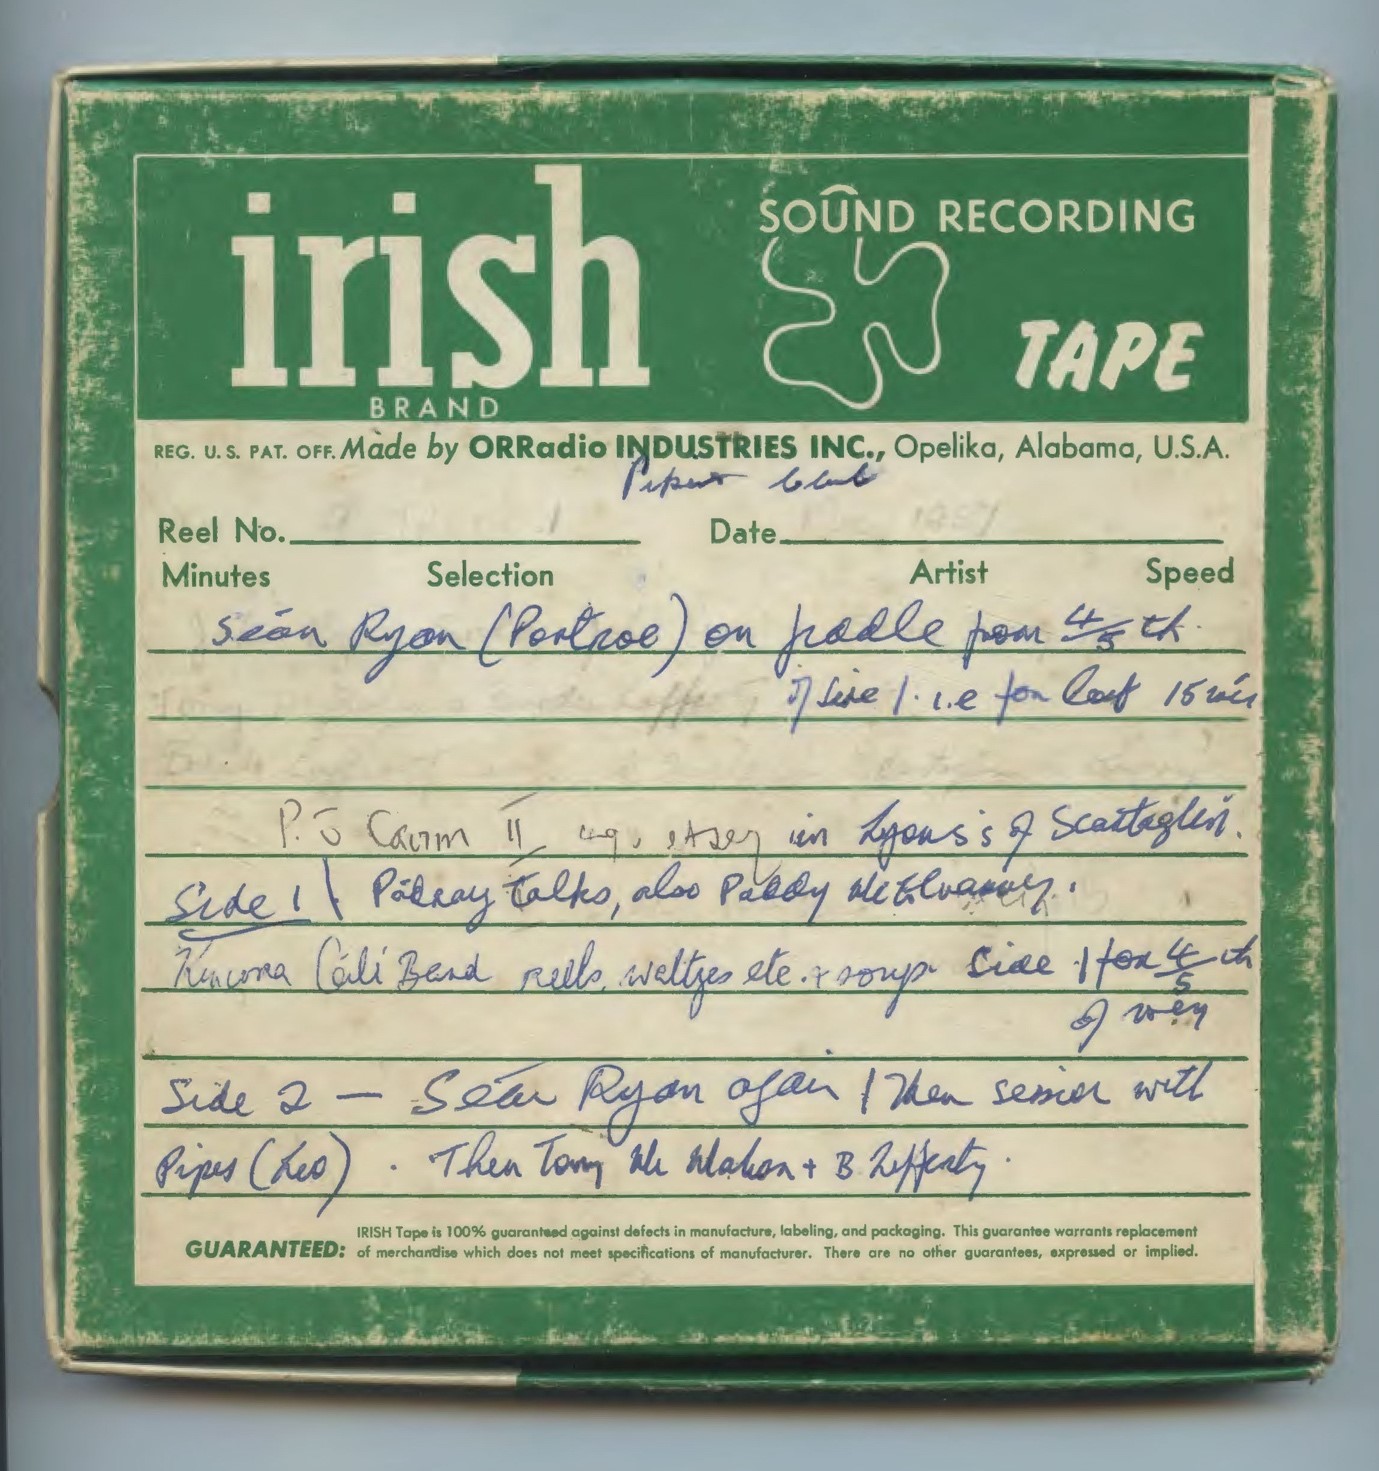 irish
BRAND
SOUND RECORDING
TAPE
REG. U.S. PAT. OFF. Made by ORRadio INDUSTRIES INC., Opelika, Alabama, U.S.A.
Pipers Club
Reel No. 1 Date
Minutes Selection Artist Speed
Seán Ryan (Portroe) on fiddle from 4/5 th
of side 1. i.e for last 15 min
P. J in Lyons's of Scartaglin.
Side 1 \ Pádraig talks, also Paddy McElvaney.
Kincora Céilí Band reels, waltzes etc. + songs Side 1 for 4/5 th
of way
Side 2 — Seán Ryan again / Then session with
Pipes (Leo). Then Tony Mc Mahon + B Lafferty.
GUARANTEED: IRISH Tape is 100% guaranteed against defects in manufacture, labeling, and packaging. This guarantee warrants replacement
of merchandise which does not meet specifications of manufacturer. There are no other guarantees, expressed or implied.